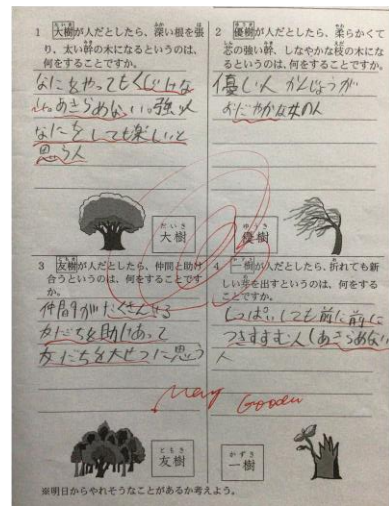 1 大樹が人だとしたら、深い根を張
り、太い幹の木になるというのは、
何をすることですか。
なにをやってもくじけな
い。あきらめない。強い人
なにをしても楽しいと
思う人
大樹
たいき
2 優樹が人だとしたら、柔らかくて
芯の強い幹、しなやかな枝の木にな
るというのは、何をすることですか。
優しい人 かんじょうが
おだやかな女の人
優樹
ゆうき
3 友樹が人だとしたら、仲間と助け
合うというのは、何をすることです
か。
仲間がたくさんいる
友だちを助けあって
友だちを大せつに思う
友樹
ともき
4 一樹が人だとしたら、折れても新
しい芽を出すというのは、何をする
ことですか。
しっぱいしても前に前に
つきすすむ人(あきらめない
人
一樹
かずき
※明日からやれそうなことがあるか考えよう。